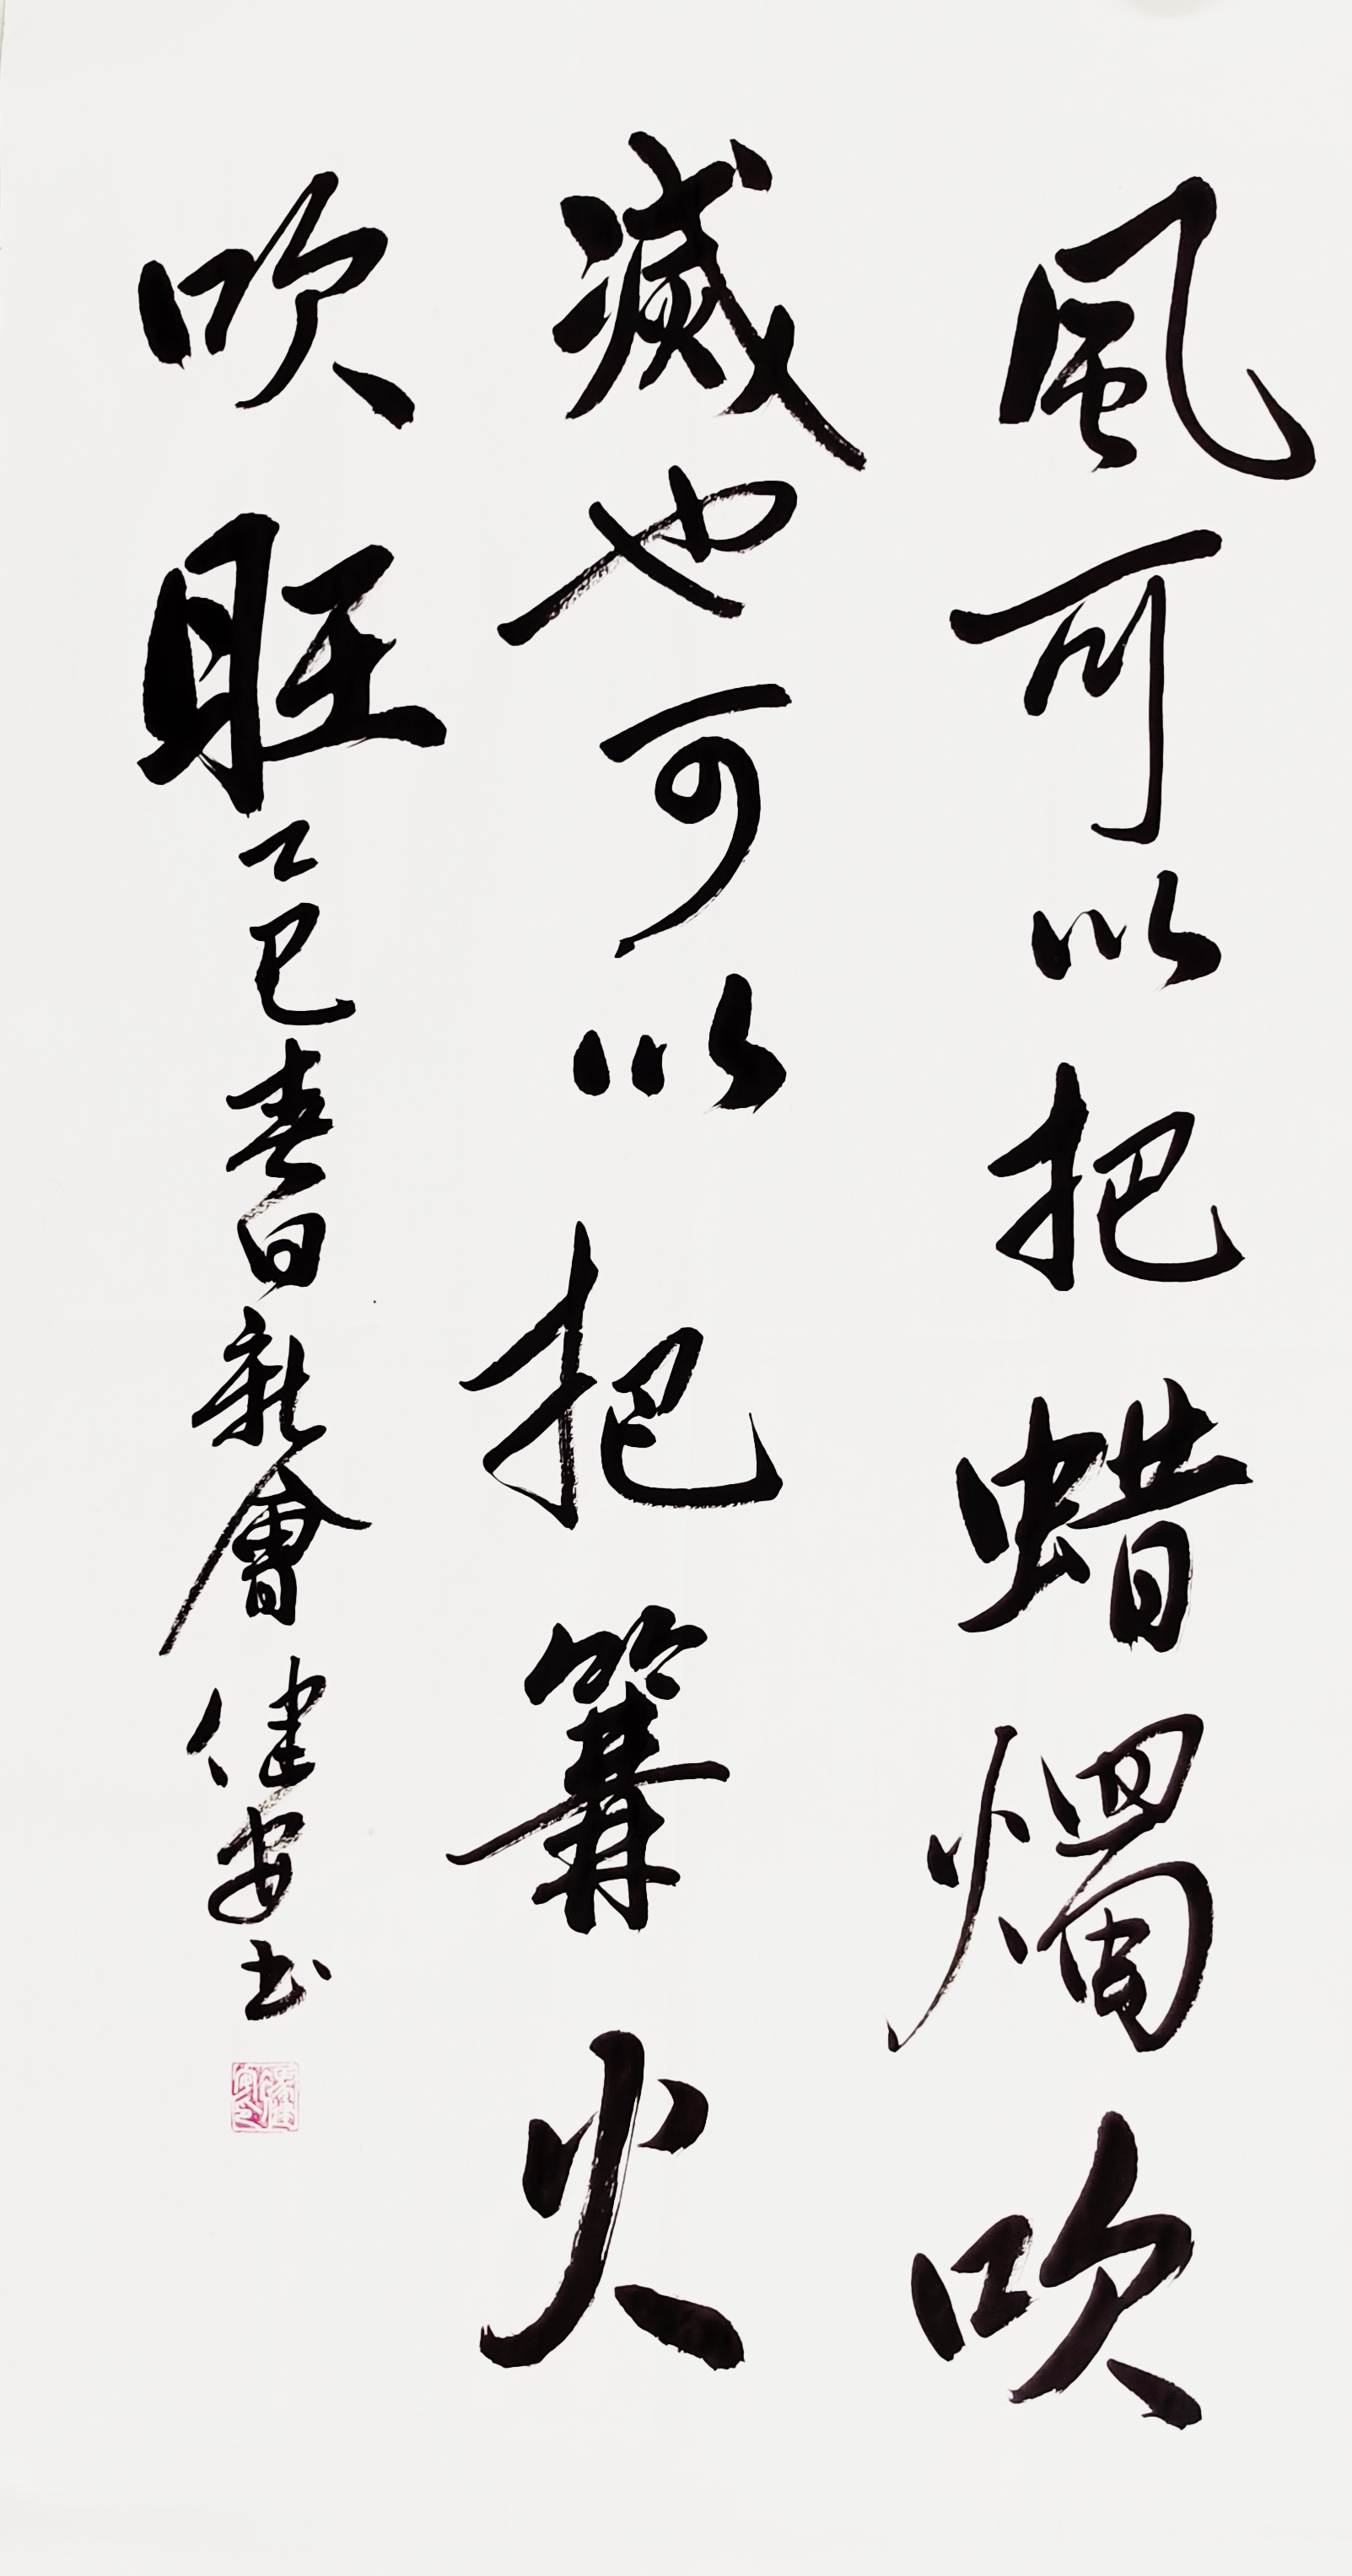 風可以把蜡燭吹
滅也可以把篝火
吹旺乙巳春日新會健安书